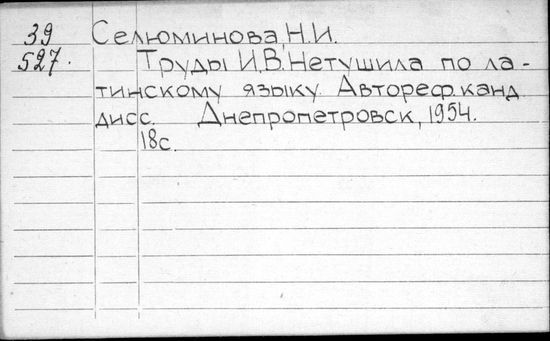 39 Селюминова, Н.И.
527. Труды И.В. Нетушила по ла-
тинскому языку. Автореф. канд.
дисс. Днепропетровск, 1954.
18с.